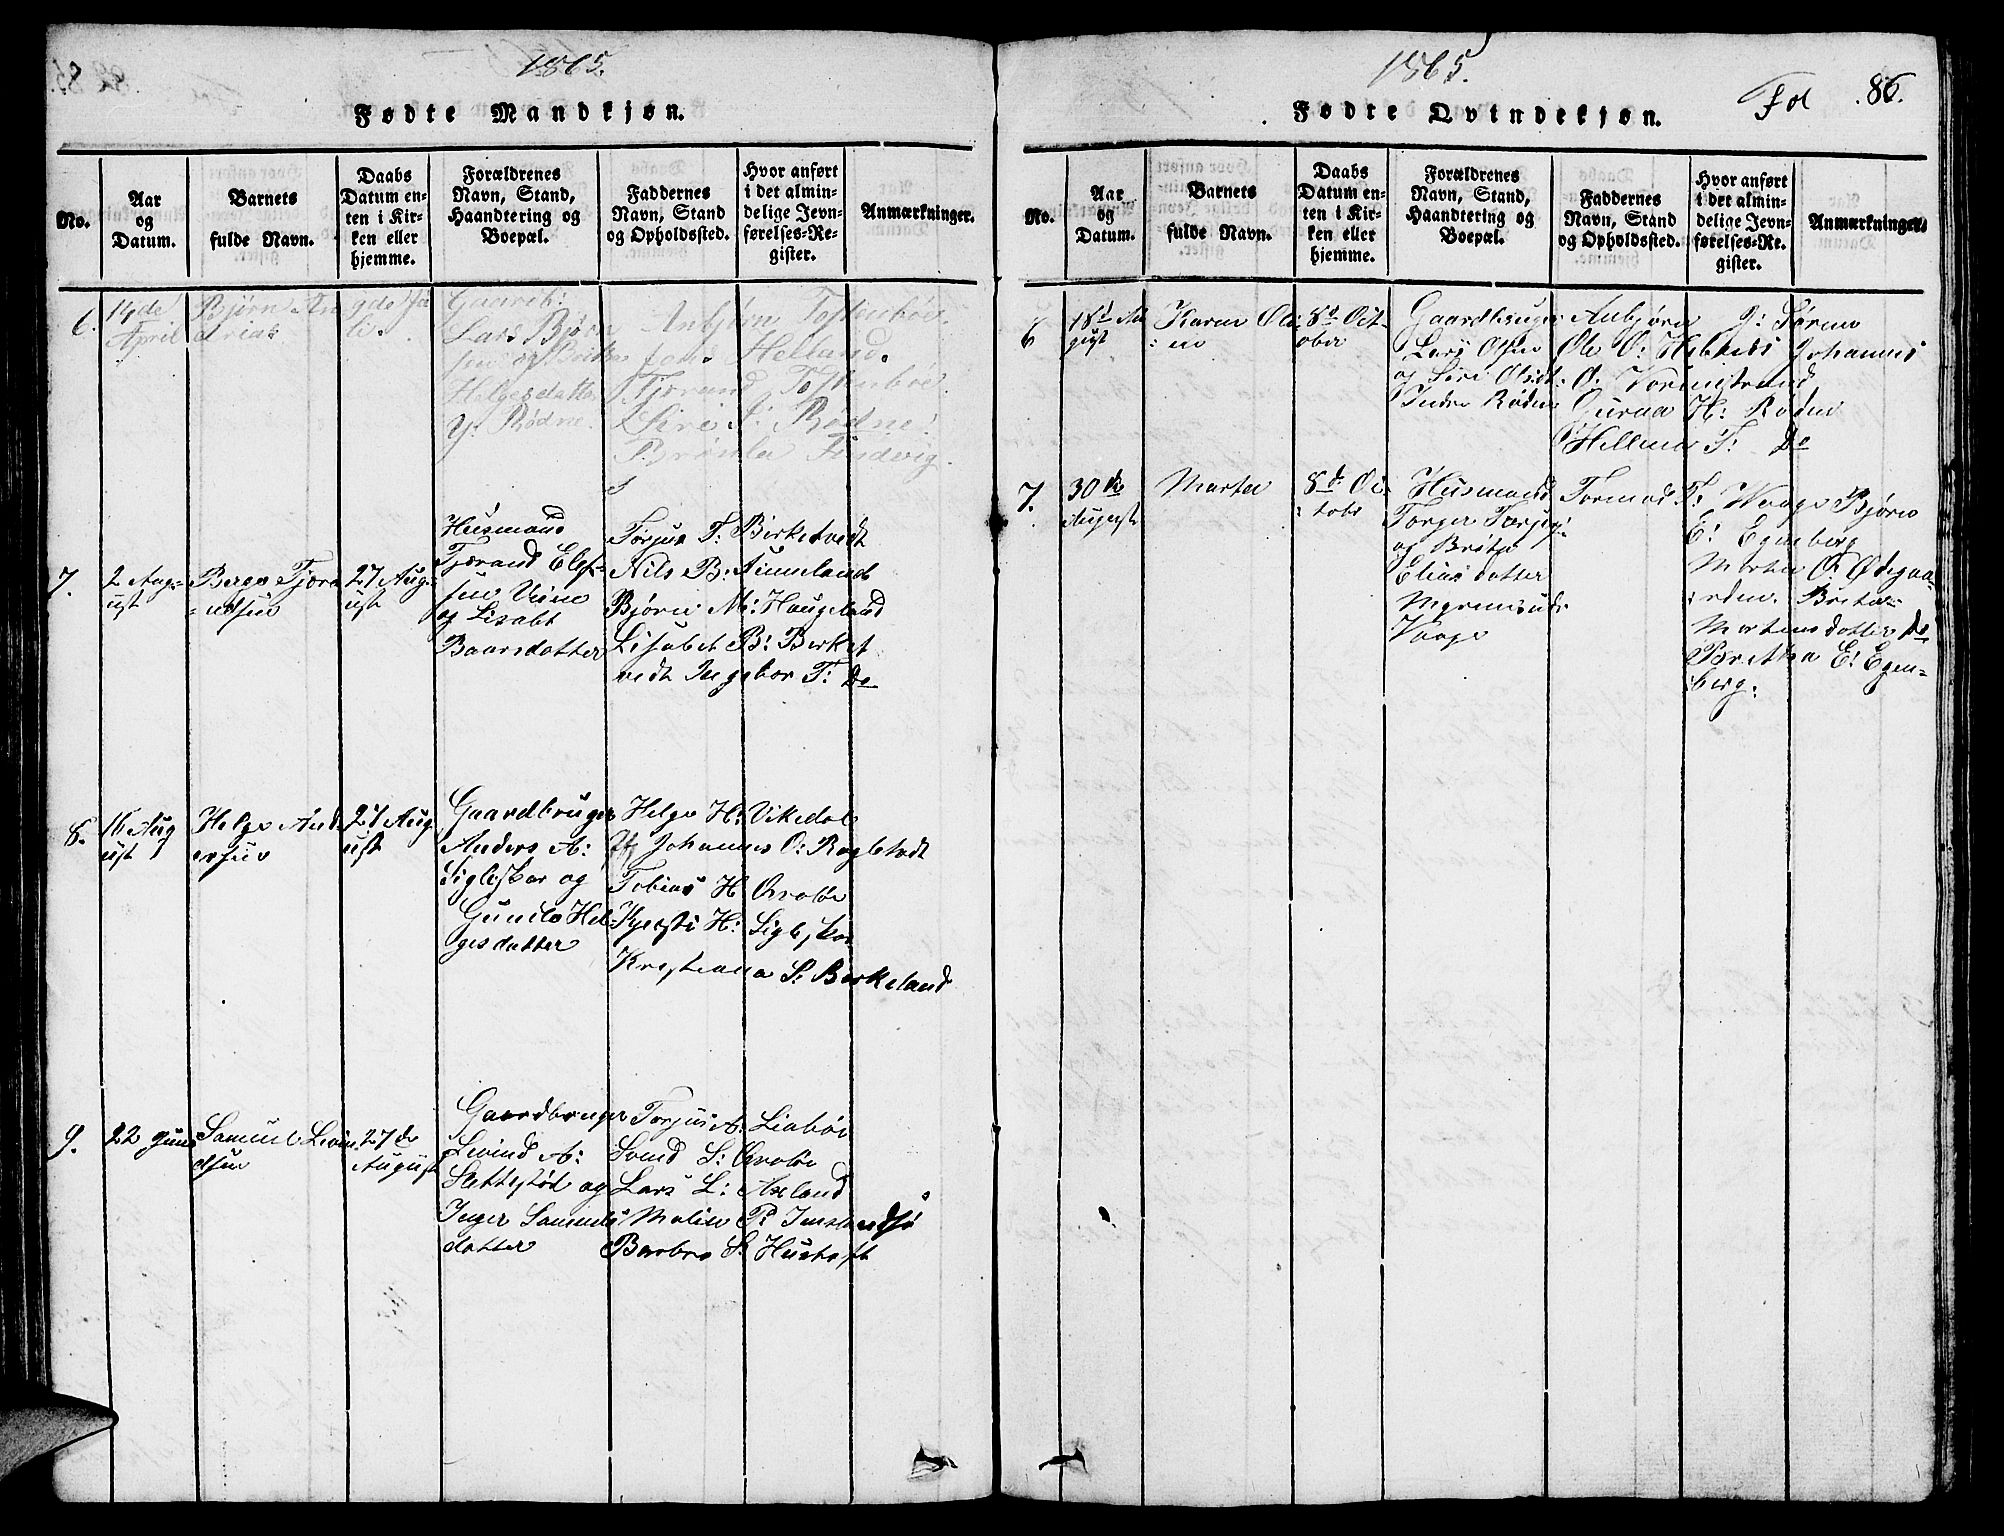 1865.
Fødte Mandkjøn.
No.
Aar
og
Datum.
Barnets
fulde Navn.
Daabs
Datum en-
ten i Kir-
ken eller
hjemme.
Forældrenes
Navn, Stand,
Haandtering og
Boepæl.
Faddernes
Navn, Stand
og Opholdssted.
Hvor anført
i det almin-
delige Jevn-
førelses-Re-
gister.
Anmærkninger.
6.
14de
April
Bjørn An
drias
9de Ju
li.
Gaardb:
Lars Bjørn
sen og Brita
Helgesdatter
Y. Rødne.
Anbjørn Tostenbøe
Jens Helland.
Tjerand Tostenbøe
Siri J: Rødne:
7.
2 Aug-
ust
Berge Tjera
ndsen
27 Aug-
ust
Husmand
Tjerand Elef-
sen
og Lisabt
Baarsdatter
Torjus T: Birketvedt
Nils B:
Bjørn M: Haugeland
Lisabet B: Birket
vedt Ingebor T: Do
8.
16 Aug
ust
Helge And
ersen
27 Aug
ust
Gaardbruger
Anders A:
Sigleskar og
Gunilo Hel-
gesdatter
Helge H: Vikedal
Johannes O:
Tobias H
Kjersti H: Sigleskar
Krestiana S: Birkeland
9.
22 Juni
Samuel Eivin
dsen
27de
August
Gaardbruger
Eivind A:
Slettestød og
Inger Samuels
datter
Torjus A: Liabøe
Svend S:
Lars L: Axland
Malin P: Imslandsjø
Barbro S: Hustoft
1865.
Fol 86.
Fødte Qvindekjøn.
No.
Aar
og
Datum.
Barnets
fulde Navn.
Daabs
Datum en-
ten i Kir-
ken eller
hjemme.
Forældrenes
Navn, Stand,
Haandtering og
Boepæl.
Faddernes
Navn, Stand
og Opholdssted.
Hvor anført
i det almin-
delige Jevn-
førelses-Re-
gister.
Anmærkninger.
6
18d Au
gust
Karen Ols
en
8d Oct
ober
Gaardbruger
Lars Olsen
og Siri Olsdt:
Indre Røden
Anbjørn
Ole O: Johannes
O. Vormestrand
Guraa H: Røden
Hellena T: Do
7.
30de
August
Marta
8d Oc
tobr
Husmand
Torger Torjs:
og Brita
Elias datter
Vaage
Tormod T: Waage Bjørn
E: Egenberg
Marta O: Ødegaa
rden. Brita
Martensdatter Do
Bretha E: Egen-
berg.